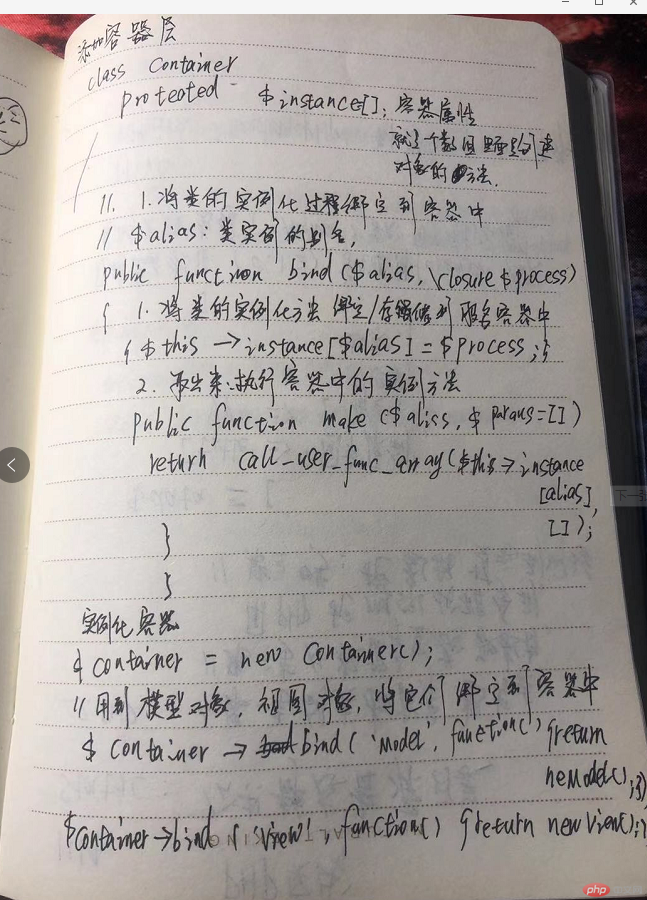 添加容器层
class Container
protected $instance[]; 容器属性
就是个数组 里面
对象的方法.
//. 1.将类的实例化过程绑定到容器中
// $alias: 类实例的别名,
public function bind($alias, \closure $process)
{ 1.将类的实例化方法 绑定/存储 到 服务容器中
{ $this → instance[$alias] = $process;}
2. 执行容器中的实例方法
public function make ($aliss, $params=[])
return call_user_func_array($this→instance
[alias],
[]);
}
}
实例化容器
$container = new Container();
// 用到模型对象, 视图对象, 将它们 绑定到容器中
$container → bind('Model', function() {return
neModel();})
$container→bind('view', function() {return new View();}
php